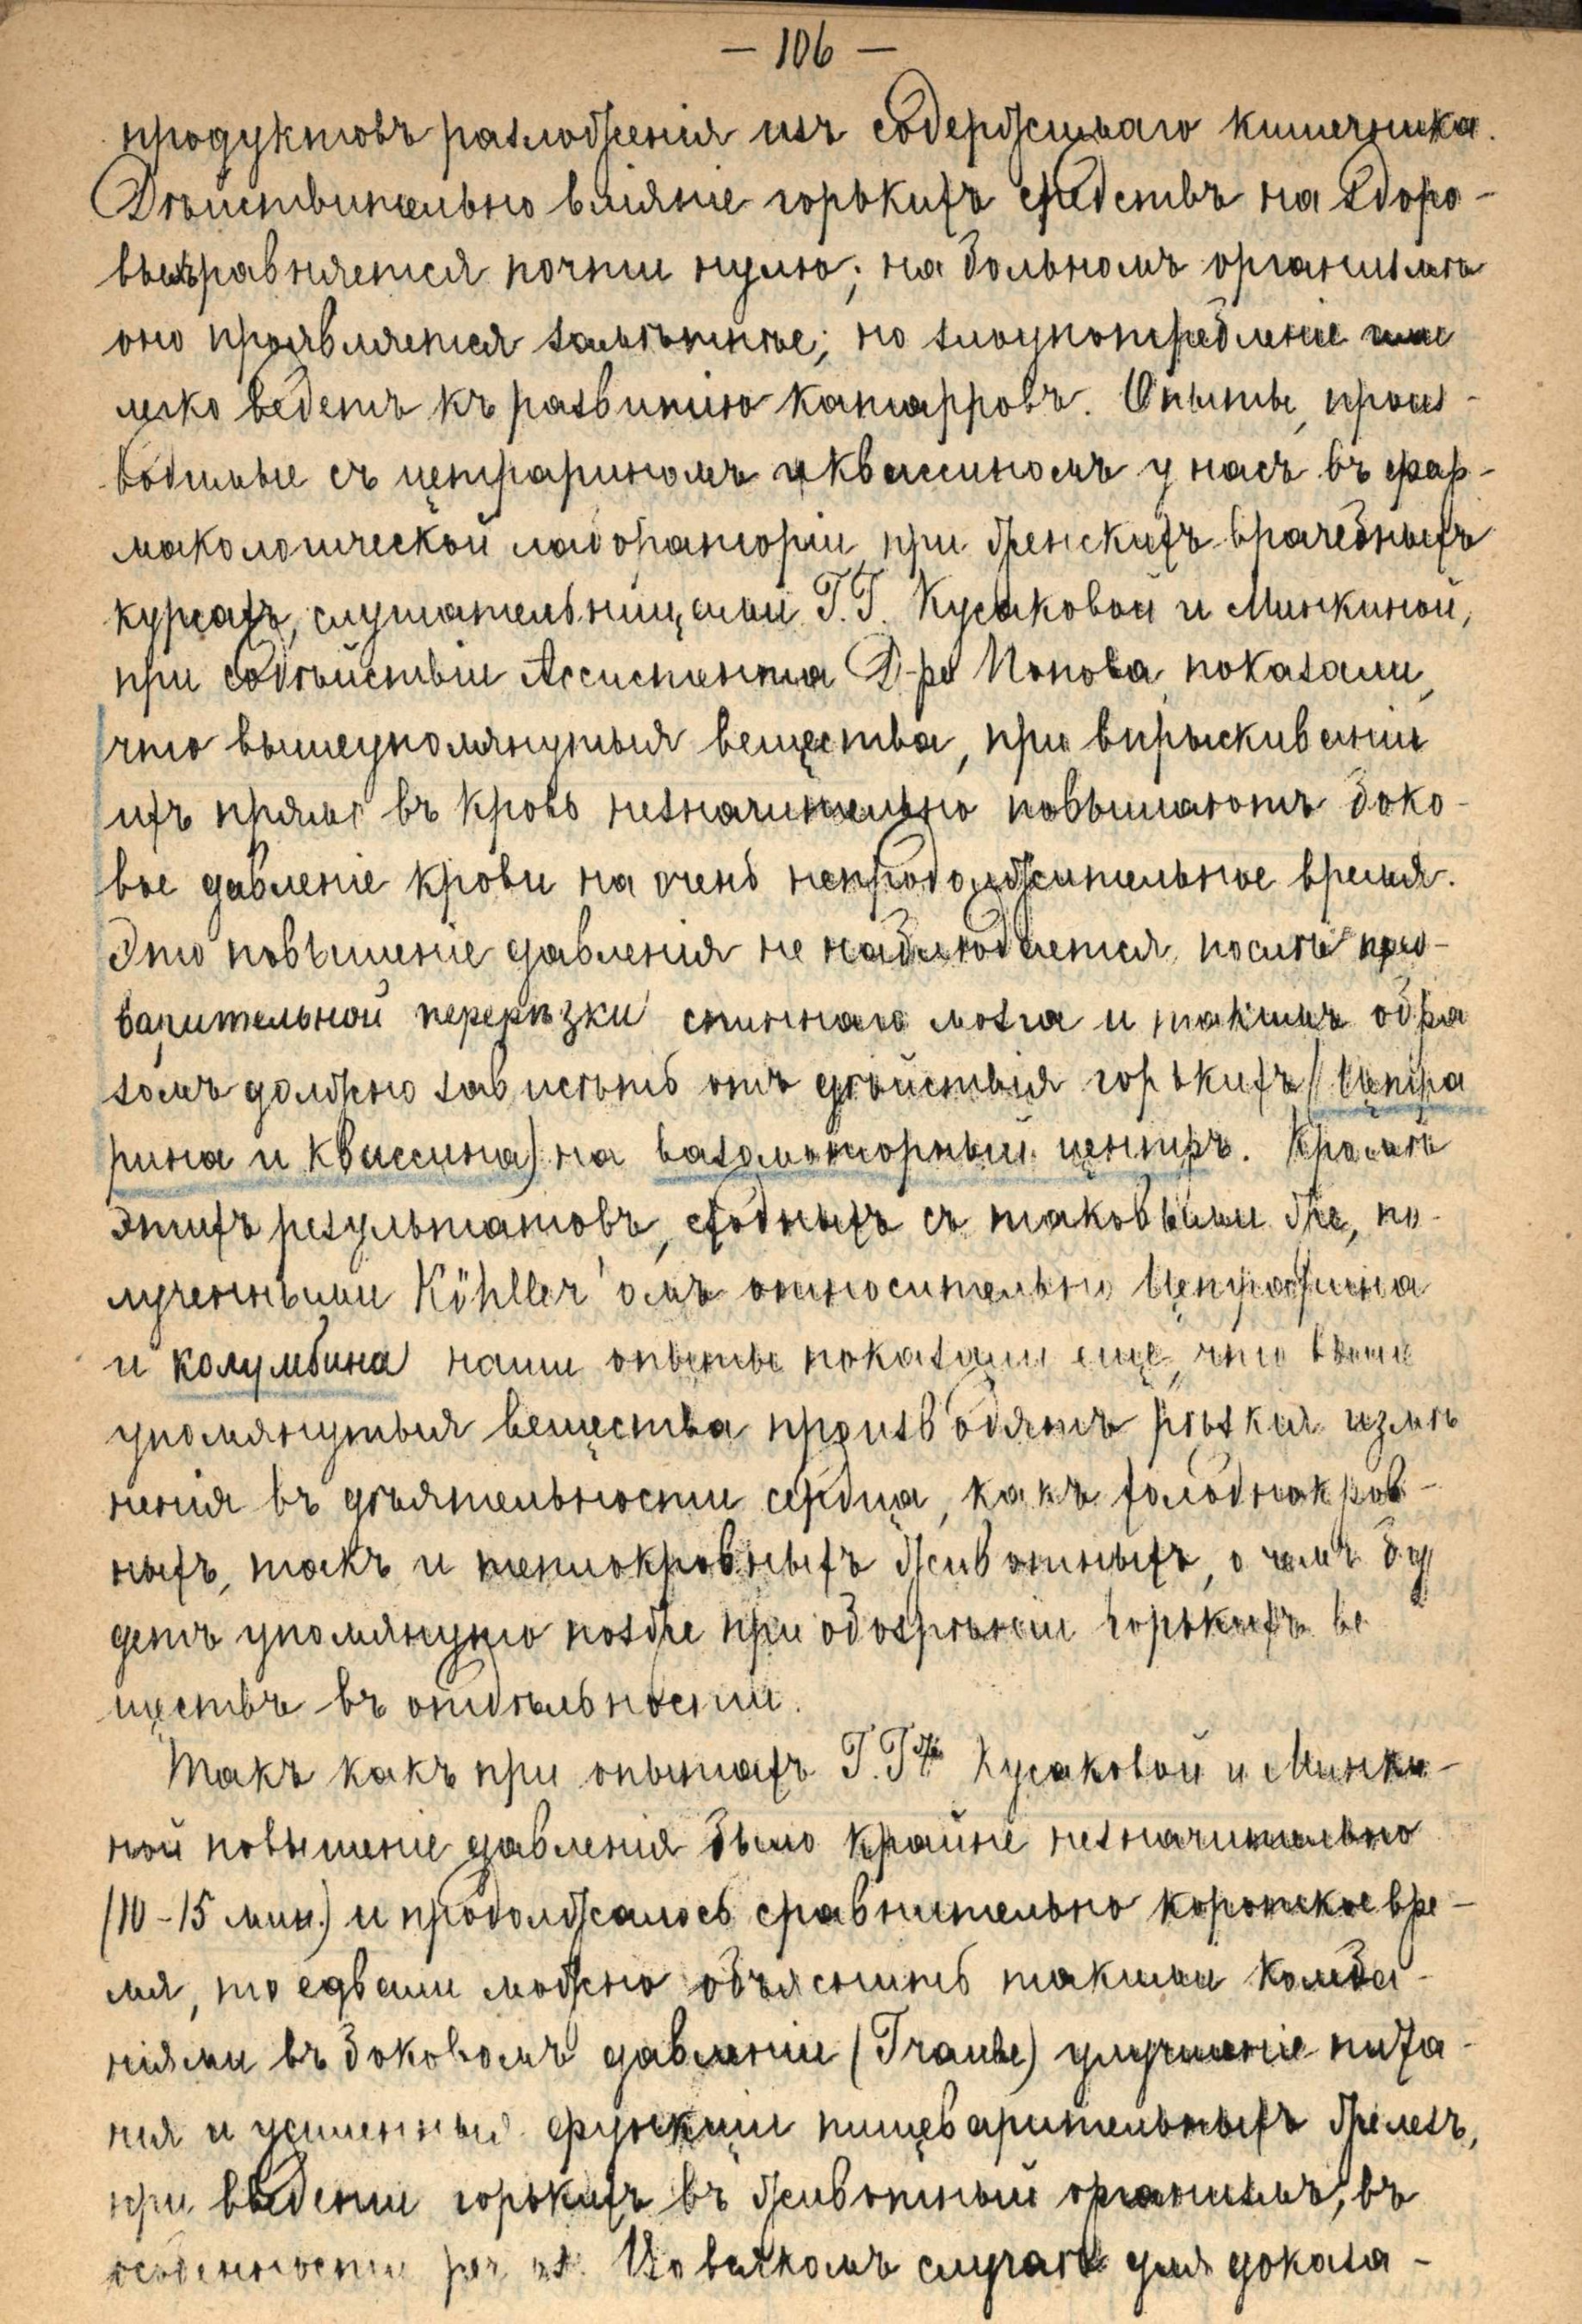 — 106 —
продуктовъ разложенія изъ содержимаго кишечника.
Дѣйствительно вліяніе горькихъ средствъ на здоро-
выхъ равняется почти нулю; на больномъ организмѣ
оно проявляется замѣтнѣе; но злоупотребленіе ими
легко ведетъ къ развитію катарровъ. Опыты, произ-
водимые съ цетрариномъ и квассиномъ у насъ въ фар-
макологической лабораторіи при женскихъ врачебныхъ
курсахъ, слушательницами Г.Г. Кусаковой и Минкиной,
при содѣйствіи Ассистента Д-ра Попова показали,
что вышеупомянутыя вещества, при впрыскиваніи
ихъ прямо въ кровь незначительно повышаютъ боко-
вое давленіе крови на очень непродолжительное время.
Это повышеніе давленія не наблюдается послѣ пред-
варительной перерѣзки спиннаго мозга и такимъ обра
зомъ должно зависѣть отъ дѣйствія горькихъ (Цетра
рина и квассина) на вазомоторный центръ. Кромѣ
этихъ результатовъ, сходныхъ съ таковыми же, по-
лученными Köhller'омъ относительно Цетрарина
и колумбина наши опыты показали еще, что выше
упомянутыя вещества производятъ рѣзкія измѣ
ненія въ дѣятельности сердца, какъ холоднокров-
ныхъ, такъ и теплокровныхъ животныхъ, о чемъ бу
детъ упомянуто позже при обозрѣніи горькихъ ве
ществъ въ отдѣльности.
Такъ какъ при опытахъ Г.Г-жъ Кусаковой и Минки-
ной повышеніе давленія было крайне незначительно
(10-15 мин.) и продолжалось сравнительно короткое вре-
мя, то едвали можно объяснить такими колеба-
ніями въ боковомъ давленіи (Traube) улучшеніе пита-
нія и усиленный функціи пищеварительныхъ железъ,
при введеніи горькихъ въ животный организмъ, въ
особенности per os. Во всякомъ случаѣ для доказа-